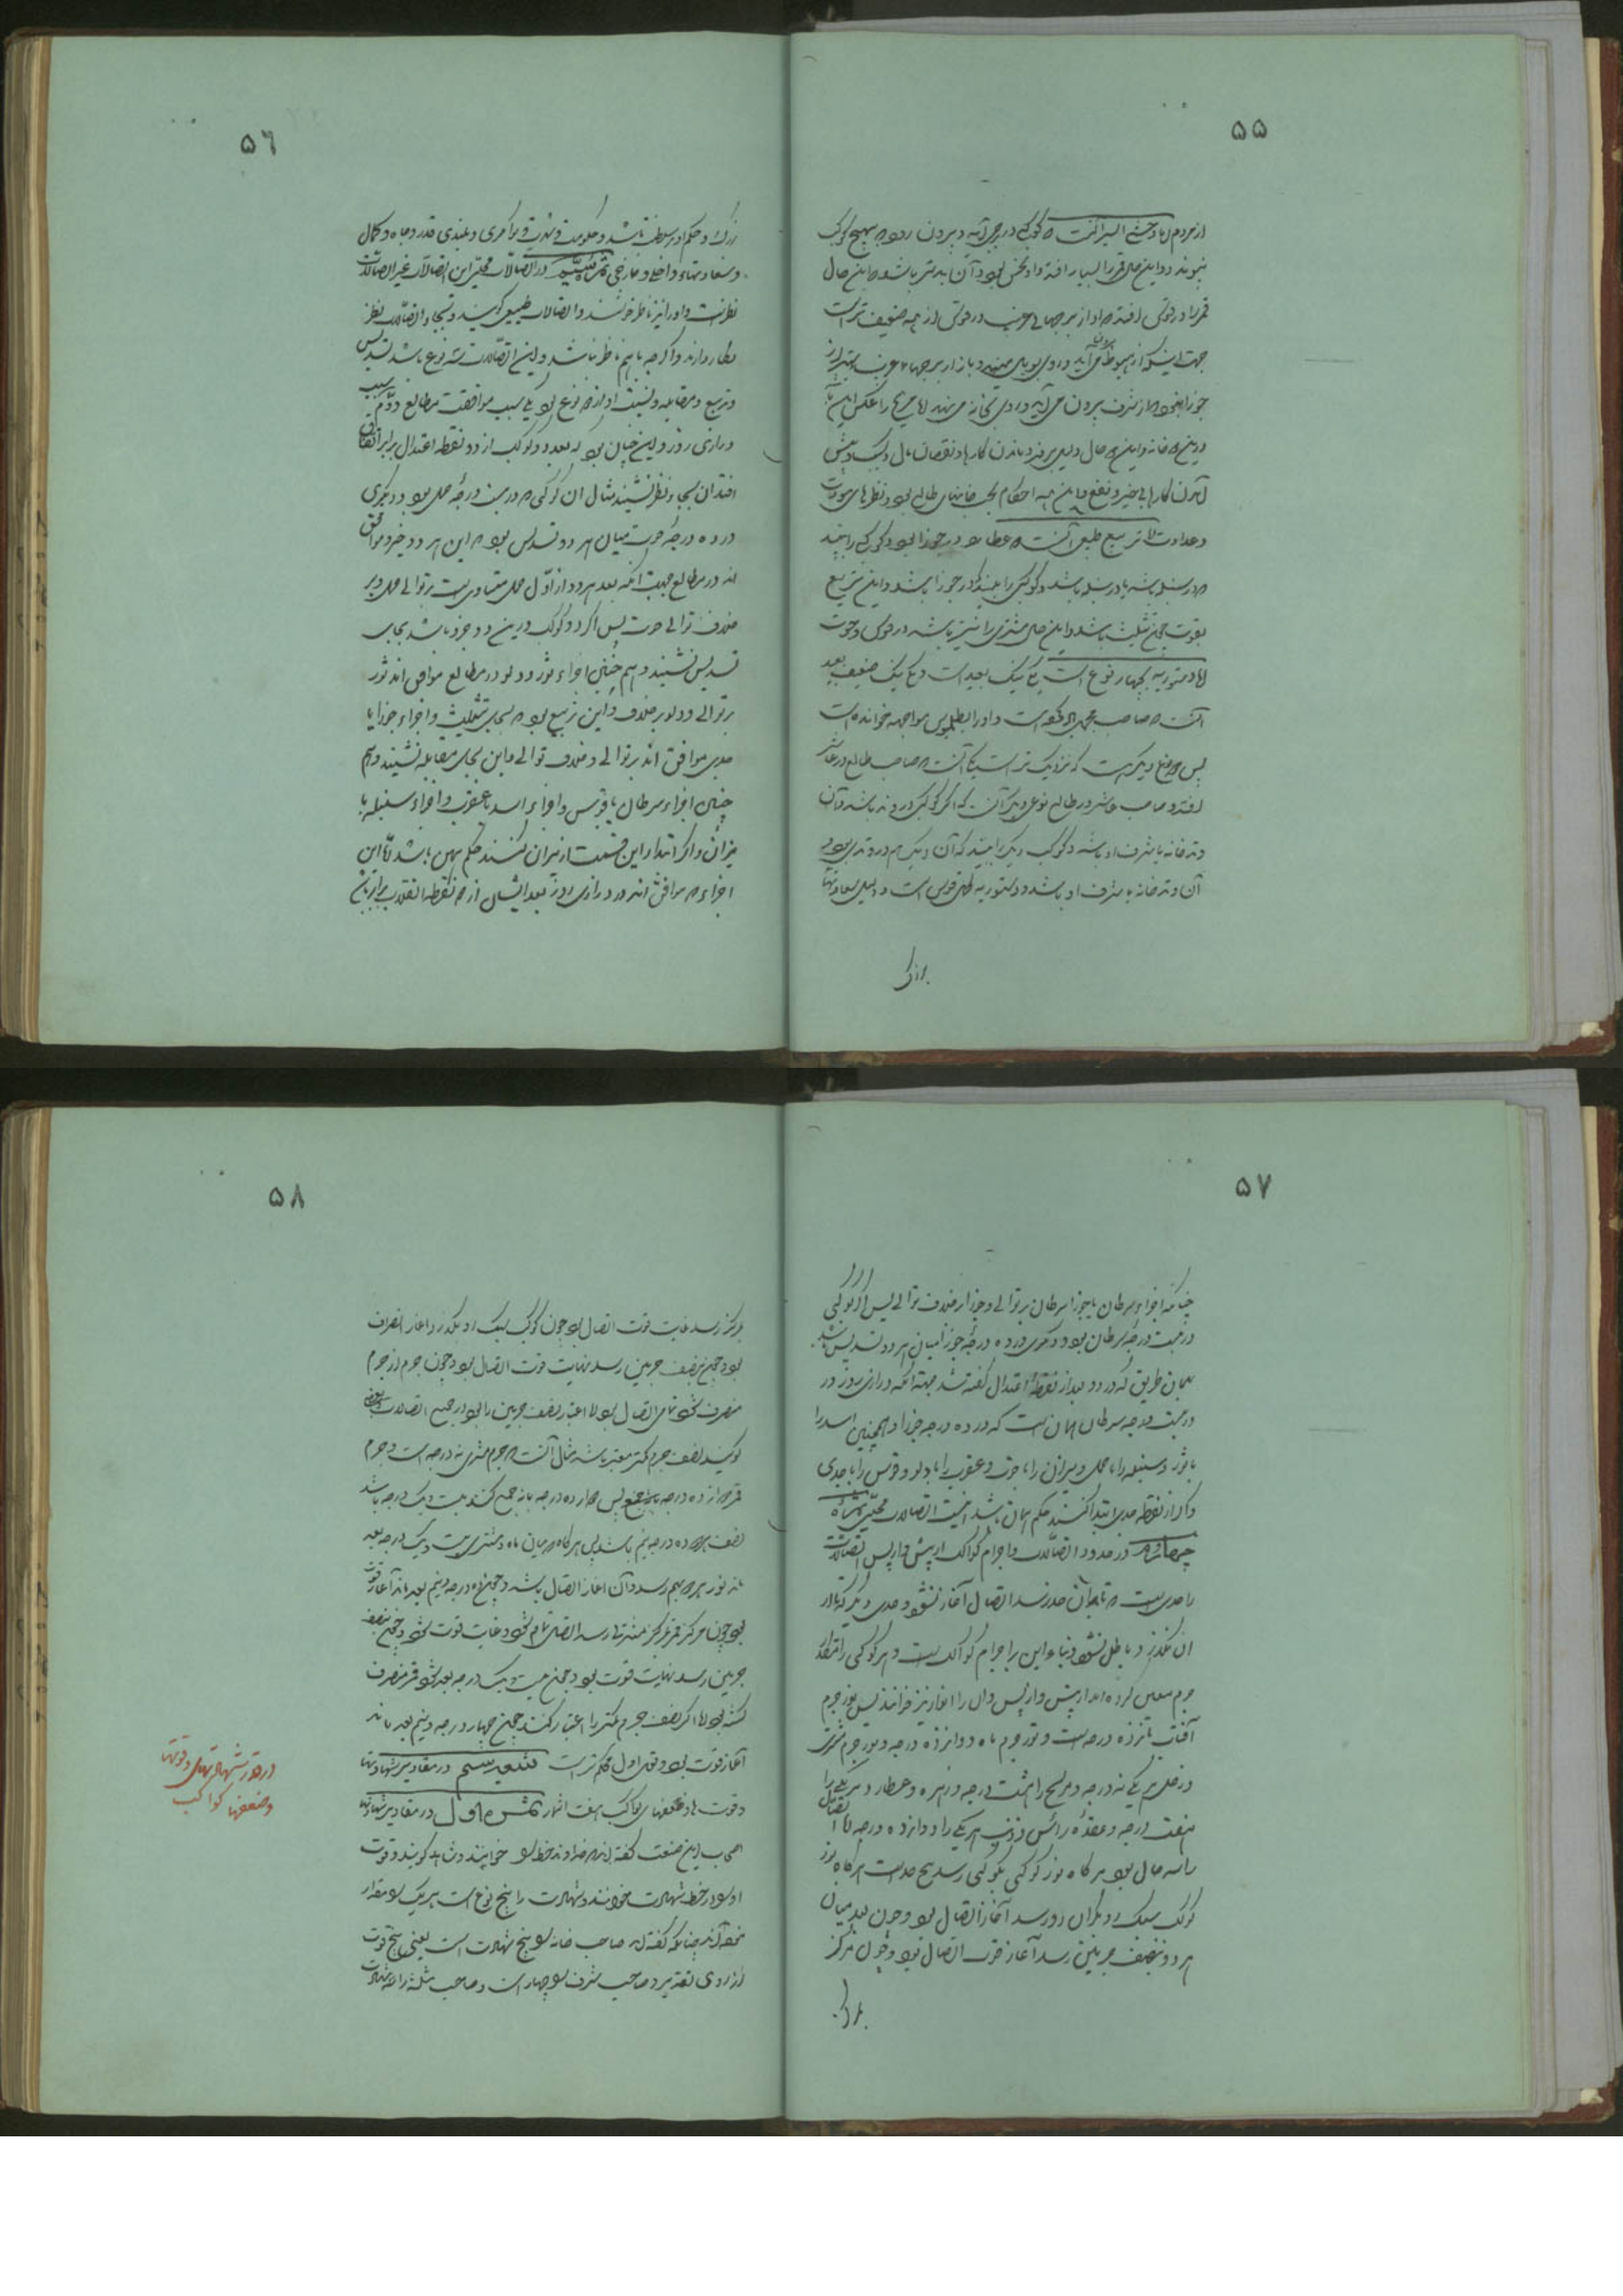 ۵۵
از مردم اما وحشی السیر آنست که کوکبی در برجی آید و بیرون رود و بهیچ کوکب
نپیوندد و این حال قمر را بسیار افتد و او نحس بود و آن بدتر باشد که این حال
قمر را در قوس افتد که او از برجهای غریب در قوس از همه ضعیف تر است
جهت اینکه از هبوط برون می آید و روی بوبال می نهد و باز از برجهای غریب بهتر از
جوزا نبود که از شرف بیرون می آید و روی بخانه می نهد اما مریخ را عکس این
درین خانه و این حال دلیل بر فرو ماندن کارها و نقصان مال و کسب و پیش
آمدن کارهای بی خیر و نفع و این همه احکام بحسب خانهای طالع بود و نظرهای مودت
و عداوت اما تربیع طبیعی آنست که عطارد در جوزا بود و کوکبی را بیند
که در سنبله باشد یا در سنبله باشد و کوکبی را بیند که در جوزا باشد و این تربیع
بقوت چون تثلیث باشد و این حال مشتری را نیز باشد در قوس و حوت
اما دستوریه بچهار نوع است یکی نیک بعید است و یکی نیک ضعیف بعید
آنست که صاحب مجمل گفته است و او را بطلمیوس مواجهه خوانده است
پس دو نوع دیگر است که نزدیک تر است یکی آنست که صاحب طالع در عاشر
افتد و صاحب عاشر در طالع نوع دیگر آن که اگر کوکبی در وتد باشد و آن
وتد خانه یا شرف او باشد و کوکب دیگر را بیند که آن دیگر هم در وتدی بود و
آن وتد خانه یا شرف او باشد و دستوریه قوی است و دلیل سعادتهای
بزرک
۵٦
بزرک و حکم و سلطنت باشد و حکومت و شهرت و سروری و بلندی قدر و جاه و کمال
و سعادتهای داخلی و خارجی ثمره سیم در اتصالات محلی این اتصالات غیر اتصالات
نظر است و او را نیز ناظر خوانند و اتصالات طبیعی گویند و بجای اتصالات نظر
بکار دارند و اگرچه باهم ناظر نباشند و این اتصالات سه نوع باشد تسدیس
و تربیع و مقابله و نسبت او از دو نوع بود یکی بسبب موافقت مطالع دوم بسبب
درازی روز و این چنان بود که بعد دو کوکب از دو نقطه اعتدال برابر اتفاق
افتد آن بجای نظر نشیند مثال آن کوکبی که در بیست درجه حمل بود و دیگری
در ده درجه حوت میان هر دو تسدیس بود که این هر دو جزو موافق
اند در مطالع جهت آنکه بعد هر دو از اول حمل متساوی است بر توالی حمل و بر
خلاف توالی حوت پس اگر دو کوکب درین دو جزو باشد بجای
تسدیس نشیند و هم چنین اجزاء ثور و دلو در مطالع موافق اند ثور
بر توالی و دلو بر خلاف و این تربیع بود بجای تثلیث و اجزاء جوزا با
جدی موافق اند بر توالی و خلاف توالی و این بجای مقابله نشیند و هم
چنین اجزاء سرطان با قوس و اجزاء اسد با عقرب و اجزاء سنبله با
میزان و اگر ابتدا این قسمت از میزان کنند حکم همین باشد اما این
اجزاء که موافق اند در درازی روز بعد ایشان از دو نقطه انقلاب برابر باشد
۵۷
چنانکه اجزاء سرطان با جوزا سرطان بر توالی و جوزا بر خلاف توالی پس اگر کوکبی
در بیست درجه سرطان بود و دیگری در ده درجه جوزا میان هر دو تسدیس باشد
بهمان طریق که در دو بعد از نقطه اعتدال گفته شد جهت آنکه درازی روز در
در بیست درجه سرطان همان است که در ده درجه جوزا و همچنین اسد را
با ثور و سنبله را با حمل و میزان را با حوت و عقرب را با دلو و قوس را با جدی
و اگر از نقطه جدی ابتدا کنند حکم همان باشد اینست اتصالات محلی ثمره
چهارم در حدود اتصالات و اجرام کواکب از پیش و از پس اتصالات
را حدی است که تا بدان حد نرسد اتصال آغاز نشود و حدی دیگر که تا از
آن نگذرد باطل نشود و بناء این بر اجرام کواکب است و هر کوکبی را مقدار
جرم معین کرده اند از پیش و از پس و آن را انوار نیز خوانند پس نور جرم
آفتاب پانزده درجه است و نور جرم ماه دوازده درجه و نور جرم مشتری
و زحل هر یکی نه درجه و مریخ را هشت درجه و زهره و عطارد هر یکی را
هفت درجه و عقده رأس و ذنب هر یکی را دوازده درجه اما اتصال
را سه حال بود هرگاه نور کوکبی بکوکبی رسد هیچ حد است هرگاه نور
کوکب سبک رو بگران رو رسد آغاز اتصال بود و چون بعد میان
هر دو بنصف جرمین رسد آغاز قوت اتصال بود و چون مرکز
بمرکز
۵۸
بمرکز رسد غایت قوت اتصال بود چون کوکب سبک رو بگذرد آغاز انصراف
بود و چون بنصف جرمین رسد نهایت قوت اتصال بود و چون جرم از جرم
منصرف شود تمامی اتصال بود اما اعتبار نصف جرمین را بود در جمیع اتصالات و بعضی
گویند نصف جرم کمتر معتبر باشد مثال آنست که جرم مشتری نه درجه است و جرم
قمر دوازده درجه پس دوازده درجه با نه جمع کنند بیست و یک درجه باشد
نصف هر دو ده درجه و نیم باشد پس هرگاه که میان ماه و مشتری بیست و یک درجه بعد
ماند نور هر دو بهم رسد و آن آغاز اتصال باشد و چون ده درجه و نیم بعد ماند آغاز قوت
بود چون مرکز قمر بمرکز مشتری رسد اتصال تمام شود و غایت قوت شود و چون بنصف
جرمین رسد نهایت قوت بود و چون بیست و یک درجه بعد شود قمر منصرف
گشته بود اما اگر نصف جرم کمتر را اعتبار کنند چون چهار درجه و نیم بعد ماند
آغاز قوت بود و قول اول محکم تر است شعبه سیم در مقادیر شهادتها
و قوتها و ضعفهای کواکب هفت اثمار ثمره اول در مقادیر شهادتها
اصحاب این صنعت گفته اند خداوند حظ را خوانند و شاهد گویند و قوت
او را در حظ شهادت خوانند و شهادت را پنج نوع است هر یک را مقدار
نهاده اند چنانکه گفته اند صاحب خانه را پنج شهادت است یعنی پنج قوت
از روی تقدیر و صاحب شرف را چهار است و صاحب مثلثه را سه شهادت
در مقدار شهادتهای و قوتها
و ضعفها کواکب